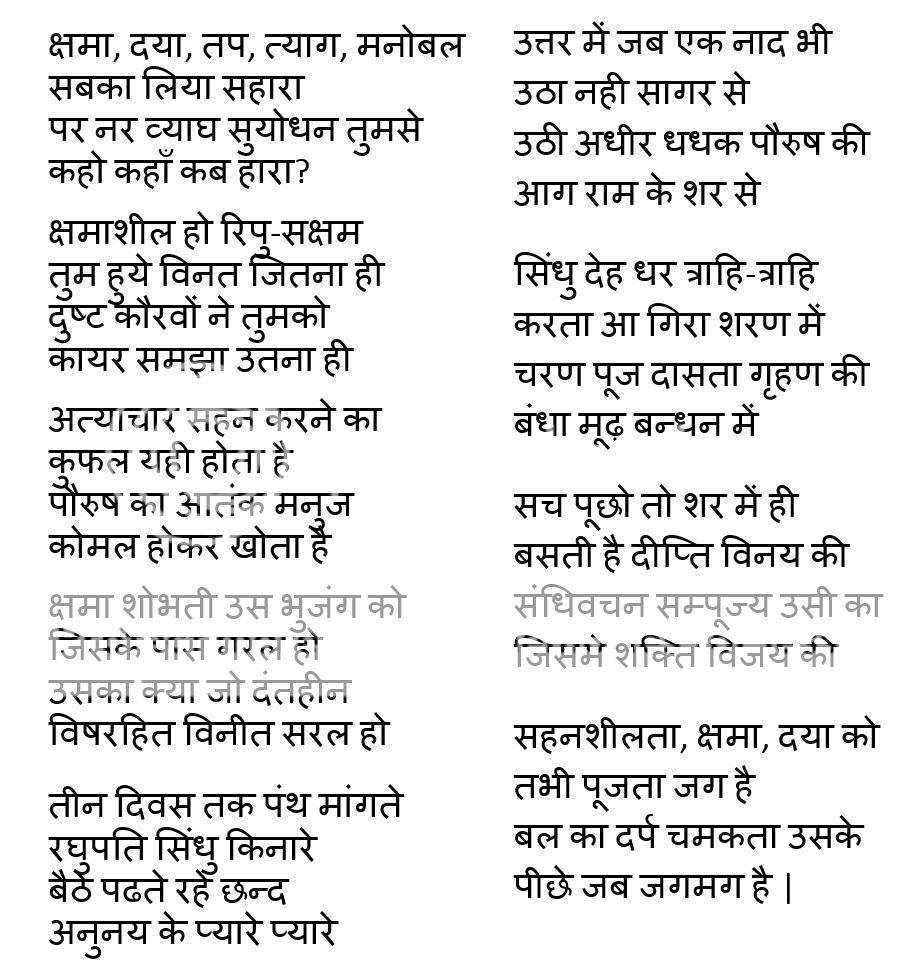 क्षमा, दया, तप, त्याग, मनोबल
सबका लिया सहारा
पर नर व्याघ सुयोधन तुमसे
कहो कहाँ कब हारा?
क्षमाशील हो रिपु-सक्षम
तुम हुये विनत जितना ही
दुष्ट कौरवों ने तुमको
कायर समझा उतना ही
अत्याचार सहन करने का
कुफल यही होता है
पौरुष का आतंक मनुज
कोमल होकर खोता है
क्षमा शोभती उस भुजंग को
जिसके पास गरल हो
उसका क्या जो दंतहीन
विषरहित विनीत सरल हो
तीन दिवस तक पंथ मांगते
रघुपति सिंधु किनारे
बैठे पढते रहे छन्द
अनुनय के प्यारे प्यारे
उत्तर में जब एक नाद भी
उठा नही सागर से
उठी अधीर धधक पौरुष की
आग राम के शर से
सिंधु देह धर त्राहि-त्राहि
करता आ गिरा शरण में
चरण पूज दासता गृहण की
बंधा मूढ़ बन्धन में
सच पूछो तो शर में ही
बसती है दीप्ति विनय की
संधिवचन सम्पूज्य उसी का
जिसमे शक्ति विजय की
सहनशीलता, क्षमा, दया को
तभी पूजता जग है
बल का दर्प चमकता उसके
पीछे जब जगमग है |